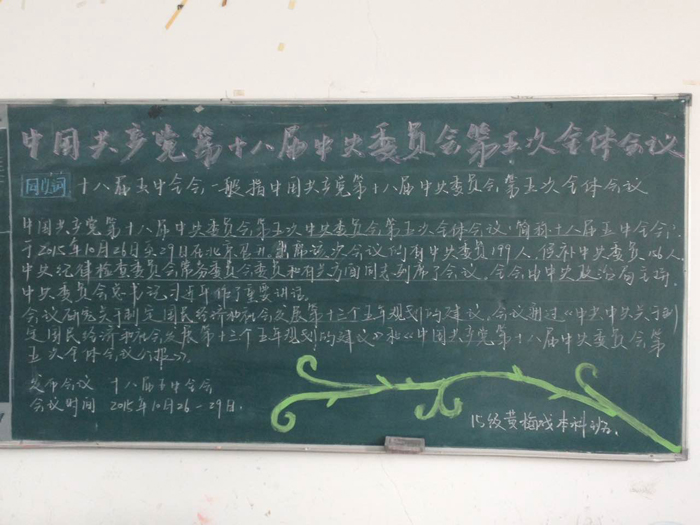 中国共产党第十八届中央委员会第五次全体会议
同义词 十八届五中全会一般指中国共产党第十八届中央委员会第五次全体会议
中国共产党第十八届中央委员会第五次中央委员会第五次全体会议,简称十八届五中全会,
于2015年10月26日至29日在北京召开,出席这次会议的有中央委员199人,候补中央委员156人
中央纪律检查委员会常务委员会委员和有关方面同志列席了会议。全会由中央政治局主持,
中央委员会总书记习近平作了重要讲话。
会议研究关于制定国民经济和社会发展第十三个五年规划的建议。会议通过《中共中央关于制
定国民经济和社会发展第十三个五年规划的建议》和《中国共产党第十八届中央委员会第
五次全体会议公报》。
发布会议 十八届五中全会
会议时间 2015年10月26-29日.
15级黄梅戏本科班.